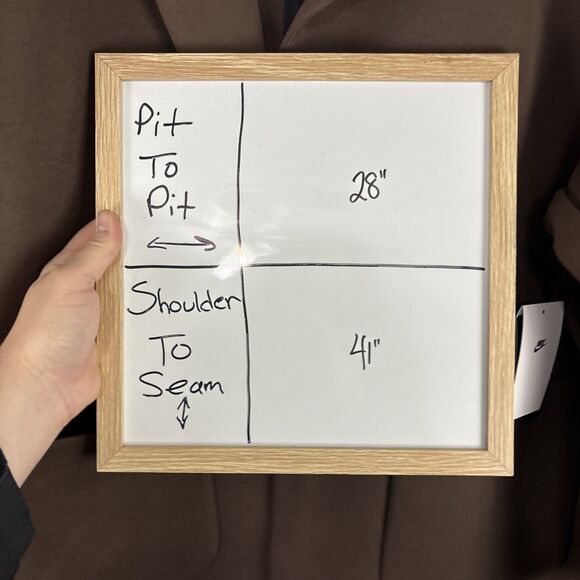 Pit
To
Pit
28"
Shoulder
To
Seam
41"